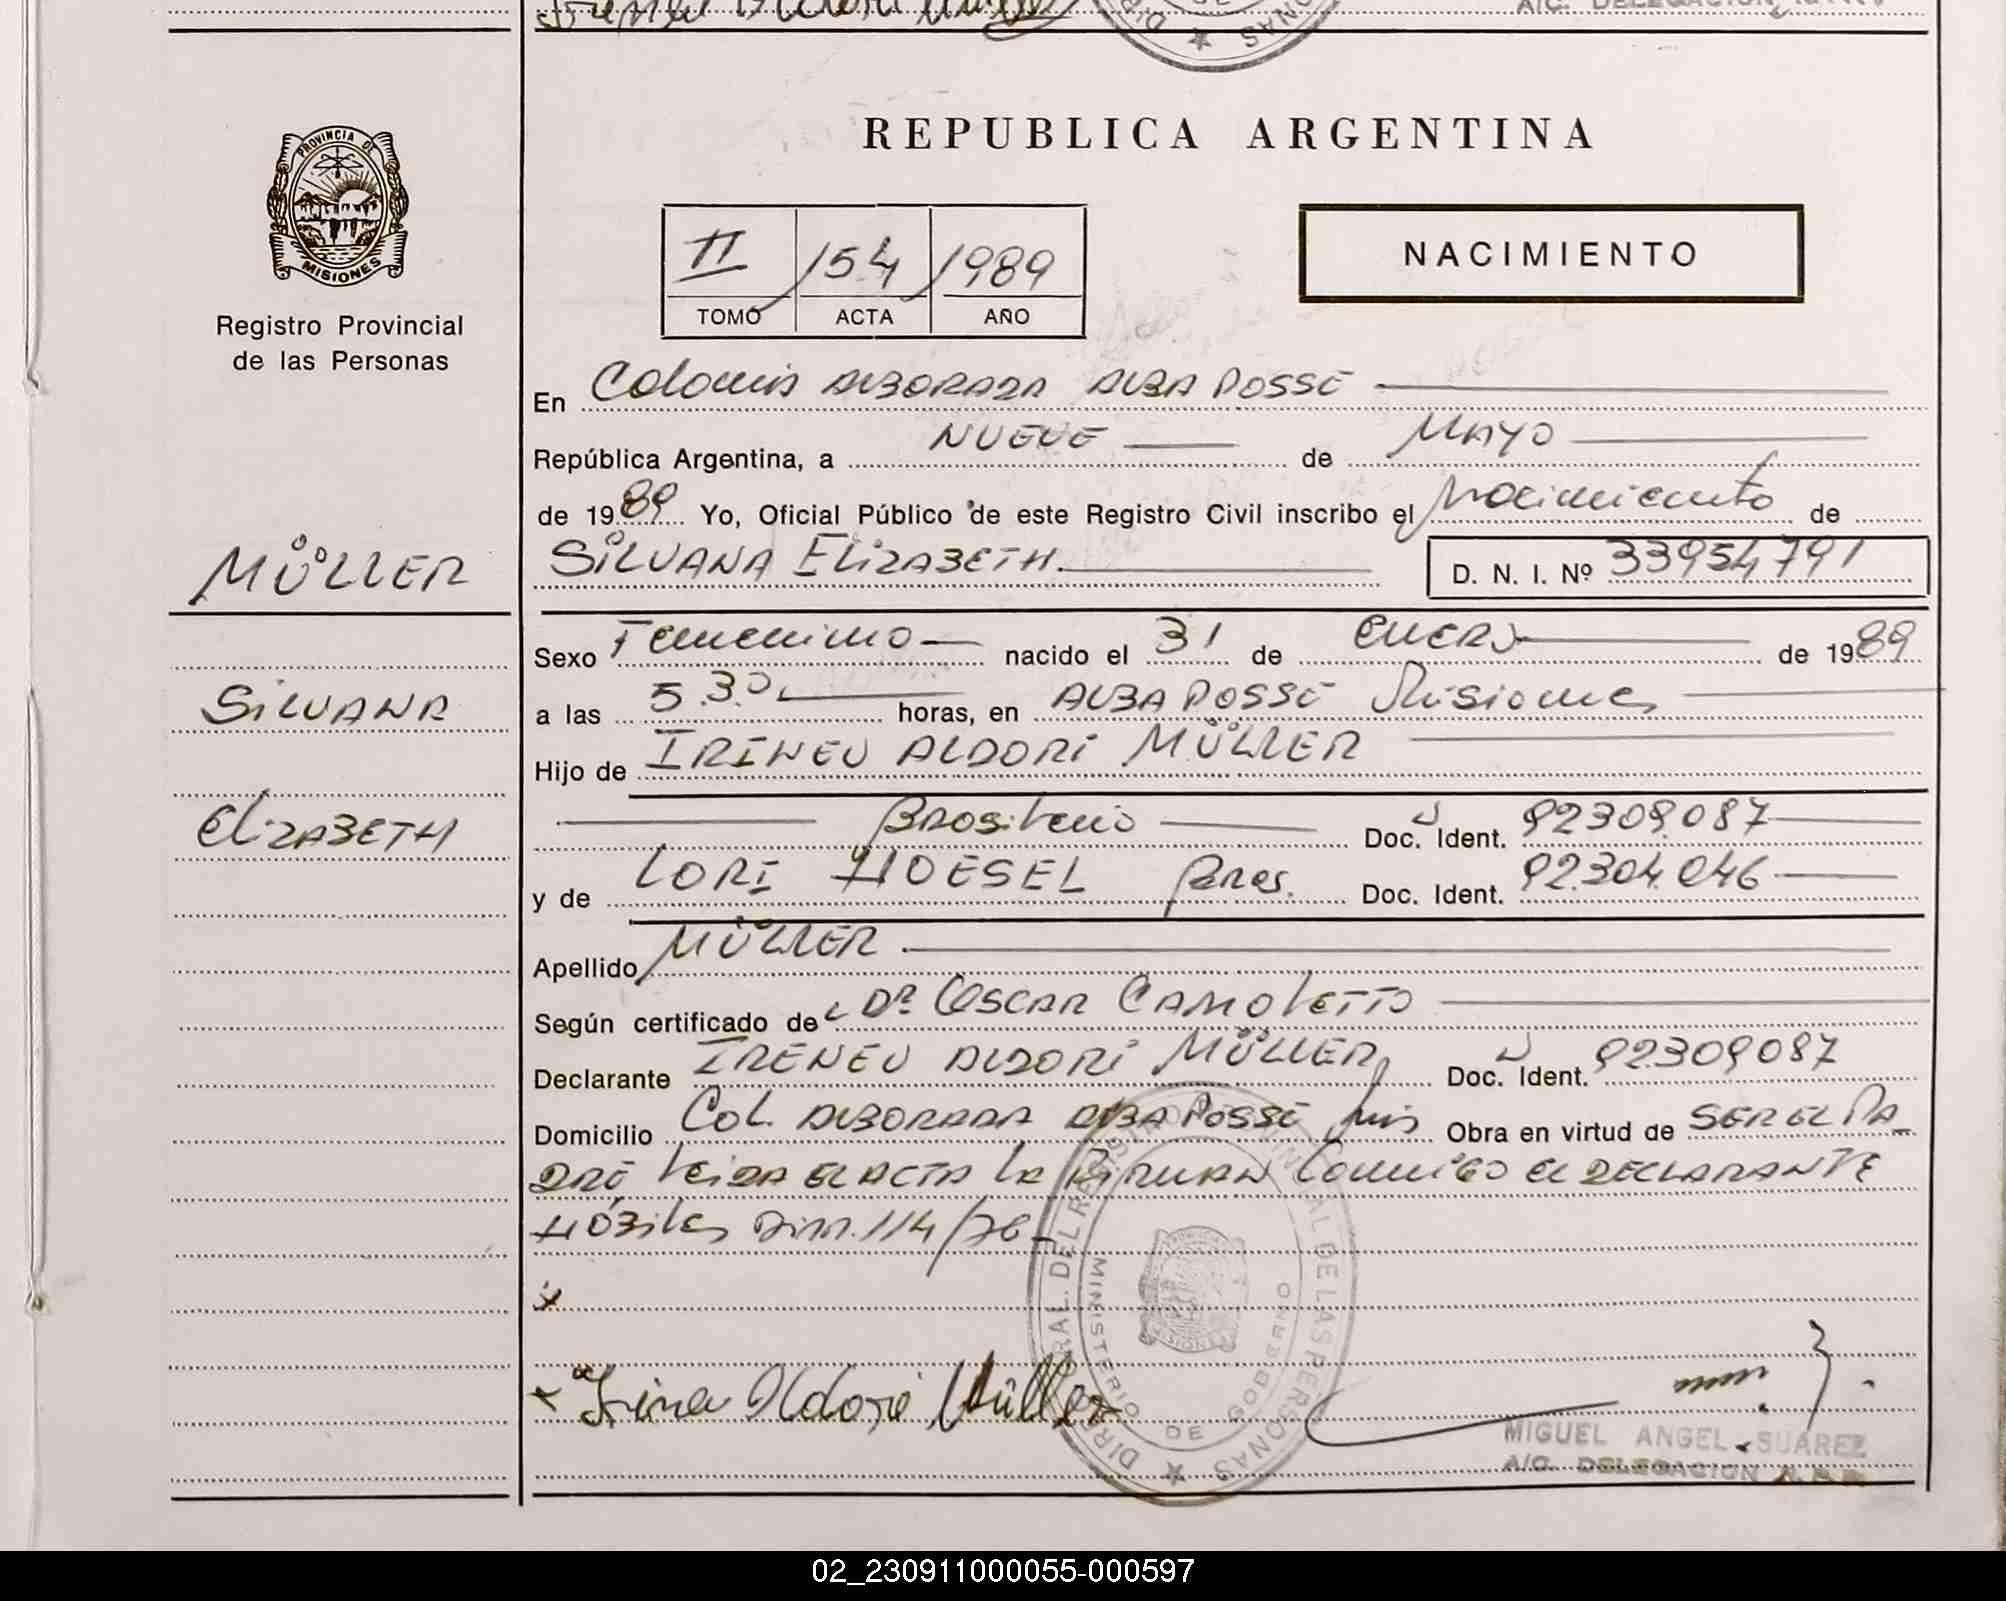 A/C. DELEGACION
PROVINCIA DE
MISIONES
Registro Provincial
de las Personas
REPUBLICA ARGENTINA
II 154 1989
TOMO ACTA AÑO
NACIMIENTO
En Colonia ALBORADA ALBA POSSE
República Argentina, a NUEVE de MAYO
de 1989 Yo, Oficial Público de este Registro Civil inscribo el Nacimiento de
MÜLLER
SILVANA ELIZABETH. D. N. I. Nº 33954791
Sexo Femenino nacido el 31 de ENERO de 1989
SILVANA
a las 5.30. horas, en ALBA POSSE Misiones
Hijo de IRINEU ALDORI MÜLLER
ELIZABETH
Brasileño Doc. Ident. 92309.087
y de LORI HOESEL Bras. Doc. Ident. 92.304.046
Apellido MÜLLER
Según certificado de DR OSCAR CAMOLETTO
Declarante IRENEU ALDORI MÜLLER Doc. Ident. 92309087
Domicilio Col. ALBORADA ALBA POSSE Mis Obra en virtud de SER EL PA_
DRE LEIDA EL ACTA LA FIRMAN CONMIGO EL DECLARANTE
HÓBILES 114/76
x
x Irineu Aldori Müller
DIRE RAL. DEL REGISTRO PROVINCIAL DE LAS PERSONAS
MINISTERIO DE GOBIERNO
MIGUEL ANGEL SUAREZ
A/C. DELEGACION R.P.P.
02_230911000055-000597